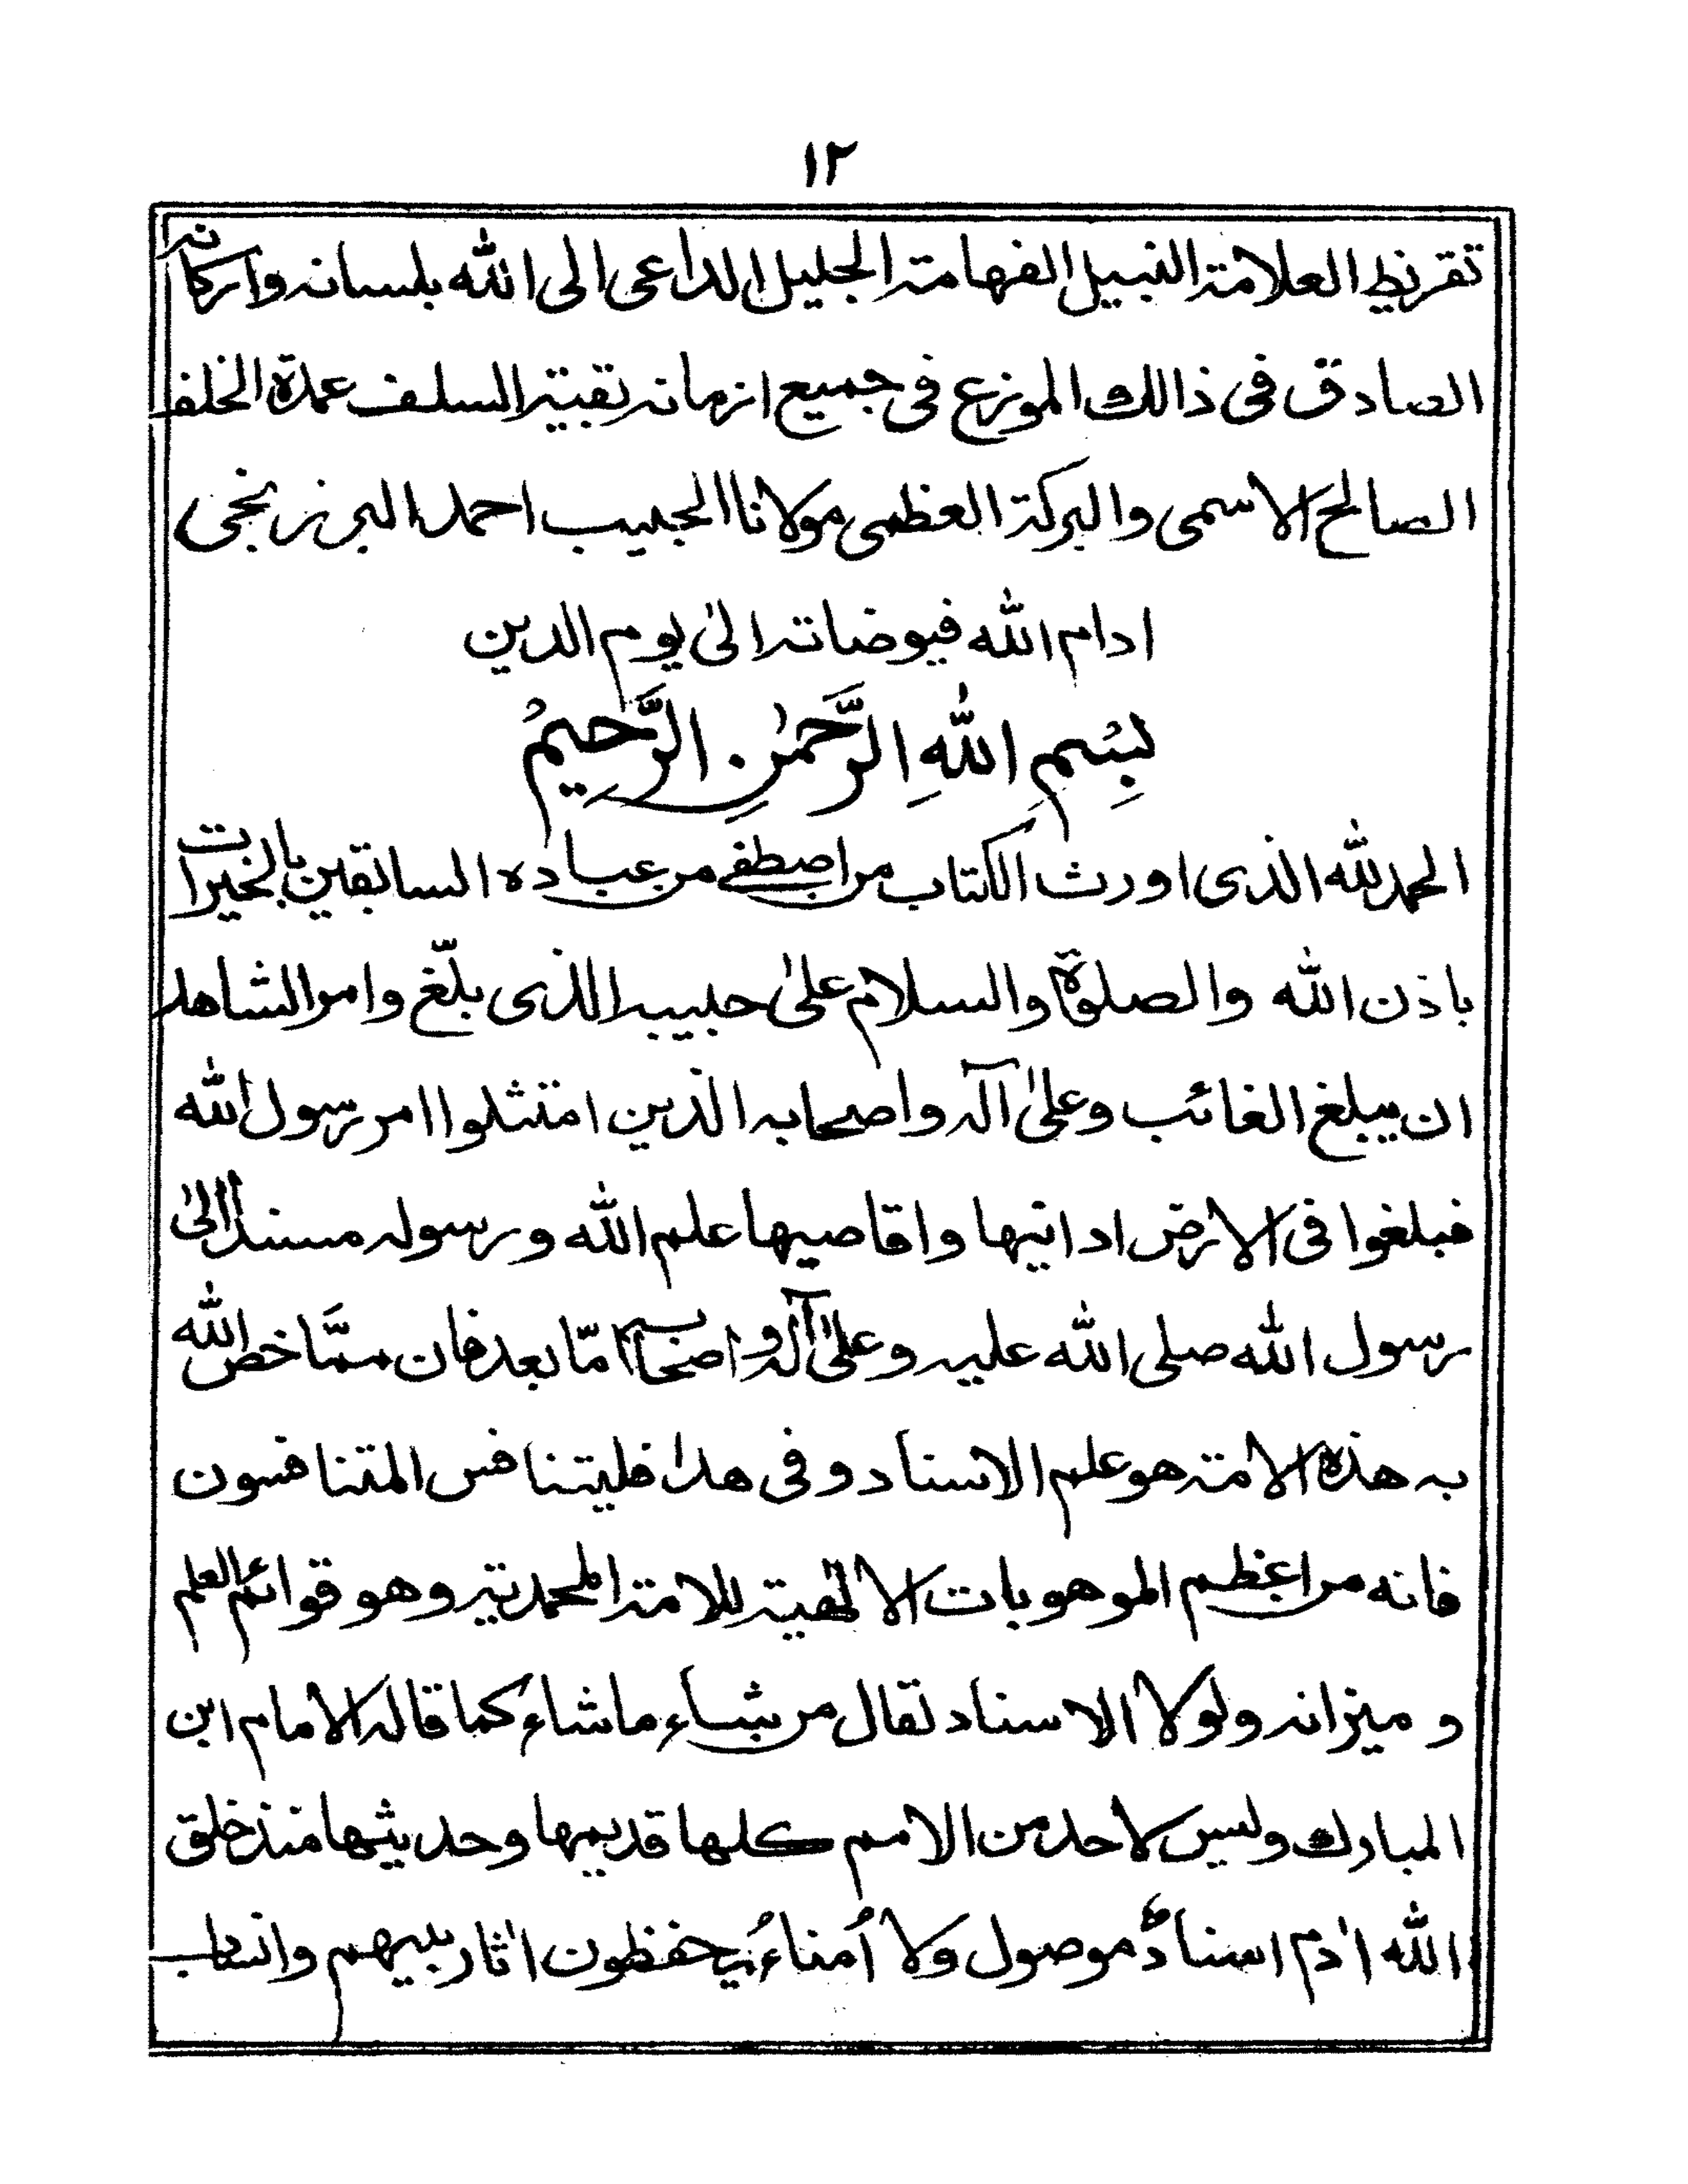 ١٢
تقريظ العلامة النبيل الفهامة الجليل الداعى الى الله بلسانه واركانه
الصادق فى ذالك الموزع فى جميع ازمانه بقية السلف عمدة الخلف
الصالح الاسمى والبركة العظمى مولانا الحبيب احمد البرزنجى
ادام الله فيوضاته الىٰ يوم الدين
بِسْمِ اللهِ الرَّحْمٰنِ الرَّحِيْمُ
الحمد لله الذى اورث الكتاب من اصطفے من عباده السابقين بالخيرات
باذن الله والصلوٰة والسلام علىٰ حبيبه الذى بلّغ وامر الشاهد
ان يبلغ الغائب وعلىٰ آله واصحابه الذين امتثلوا امر رسول الله
فبلغوا فى الارض ادانيها واقاصيها علم الله ورسوله مسندا الىٰ
رسول الله صلى الله عليه وعلىٰ آله واصحابه امّا بعد فان ممّا خص الله
به هذه الامة هو علم الاسناد وفى هذا فليتنافس المتنافسون
فانه من اعظم الموهوبات الالٰهية للامة المحمدية وهو قوائم العلم
و ميزانه ولولا الاسناد لقال من شاء ما شاء كما قاله الامام ابن
المبارك وليس لاحد من الامم كلها قديمها وحديثها منذ خلق
الله اٰدم اسنادٌ موصول ولا اُمناءُ يحفظون اٰثار نبيهم وانساب